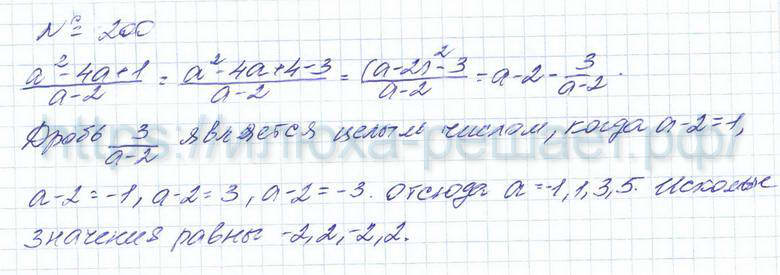 № 200
(a²-4a+1)/(a-2) = (a²-4a+4-3)/(a-2) = ((a-2)²-3)/(a-2) = a-2-3/(a-2).
Дробь 3/(a-2) является целым числом, когда a-2=1,
a-2=-1, a-2=3, a-2=-3. Отсюда a=-1,1,3,5. Искомые
значения равны -2,2,-2,2.
https://илюха-решает.рф/